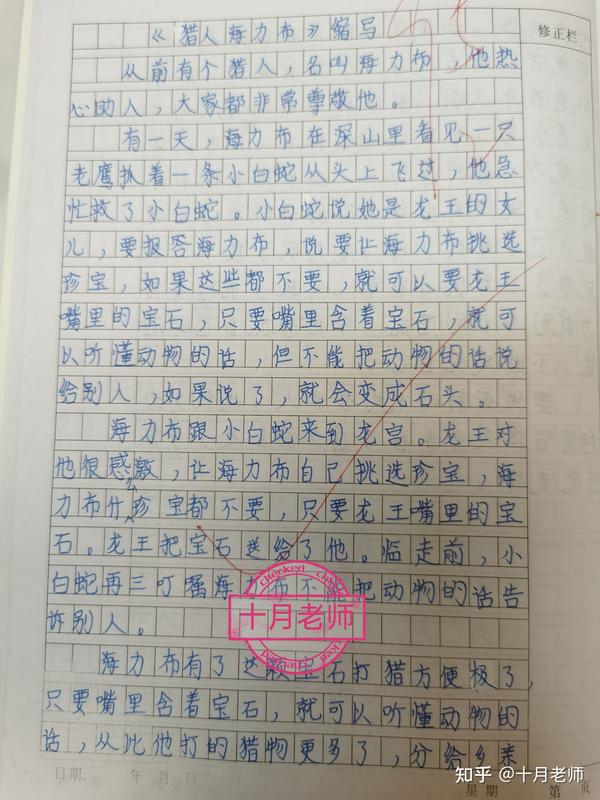 《猎人海力布》缩写
修正栏
从前有个猎人，名叫海力布，他热
心助人，大家都非常尊敬他。
有一天，海力布在深山里看见一只
老鹰抓着一条小白蛇从头上飞过，他急
忙救了小白蛇。小白蛇说她是龙王的女
儿，要报答海力布，说要让海力布挑选
珍宝，如果这些都不要，就可以要龙王
嘴里的宝石，只要嘴里含着宝石，就可
以听懂动物的话，但不能把动物的话说
给别人，如果说了，就会变成石头。
海力布跟小白蛇来到龙宫。龙王对
他很感激，让海力布自己挑选珍宝，海
力布什么珍宝都不要，只要龙王嘴里的宝
石。龙王把宝石送给了他。临走前，小
白蛇再三叮嘱海力布不能把动物的话告
诉别人。
checked
十月老师
checked
海力布有了这颗宝石打猎方便极了，
只要嘴里含着宝石，就可以听懂动物的
话，从此他打的猎物更多了，分给乡亲
日期： 年 月 日
星期 第 页
知乎 @十月老师